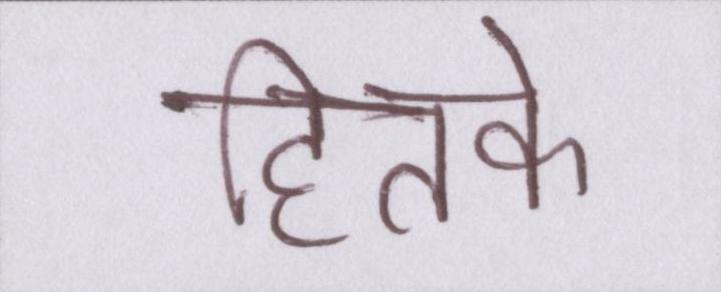 हितके